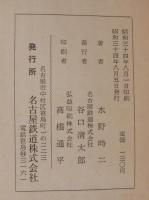 昭和三十四年八月一日印刷
昭和三十四年八月五日発行
定価 一三〇円
著者 水野時二
名古屋鉄道株式会社
発行者 谷口清太郎
弘益印刷株式会社
印刷者 高橋通平
名古屋市中村区笹島町一の二二三
発行所 名古屋鉄道株式会社
電話笹島局三一六一